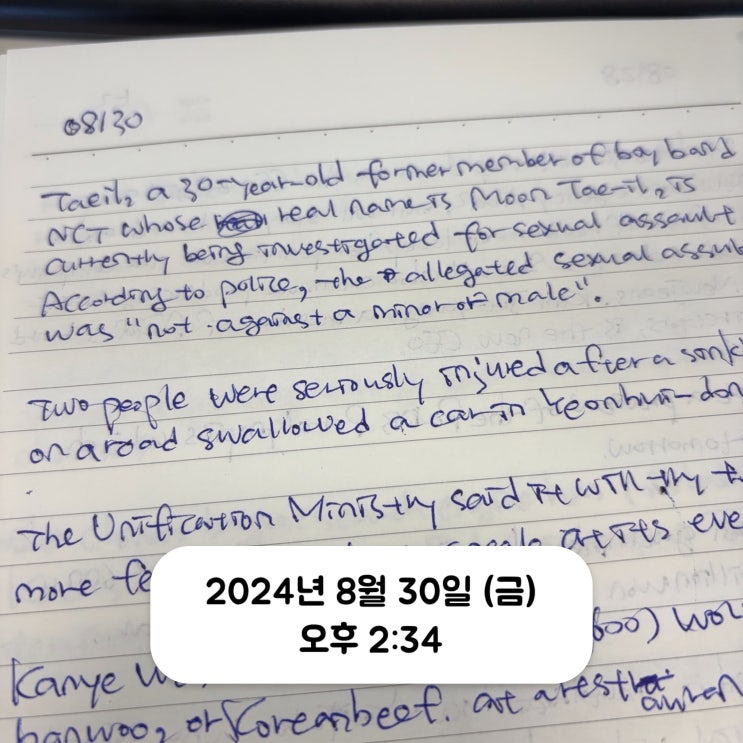 08130
Taeil, a 30-year-old former member of boy band
NCT whose real name is Moon Tae-il, is
currently being investigated for sexual assault
According to police, the allegated sexual assult
was "not against a minor or male".
Two people were seriously injured after a sink
on a road swallowed a car in Yeonhui-don
The Unification Ministry said it will try t
more fe people artists eve
2024년 8월 30일 (금)
오후 2:34
600) wor
Kanye W
hanwoo, or Korean beef. at a restauran